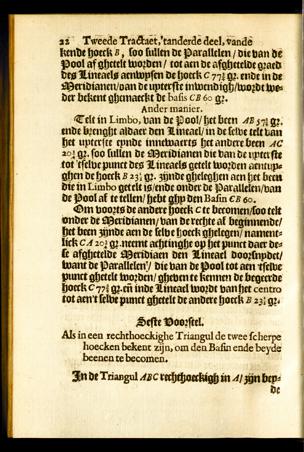 22 Tweede Tractaet, 'tanderde deel, vande
kende hoeck B, soo sullen de Parallelen/ die van de
Pool af ghetelt worden/ tot aen de afghetelde graed
des Lineaels aenwysen de hoeck C 77¾ gr. ende in de
Meridianen/van de upterste inwendigh/wordt we-
der bekent ghemaeckt de basis CB 60 gr.
Ander manier.
Telt in Limbo, van de Pool/ het been AB 57¾ gr.
ende brenght aldaer den Lineael/ in de selve telt van
het upterste eynde innewaerts het andere been AC
20¾ gr. soo sullen de Meridianen die van de uperste
tot 'tselve punct des Lineaels getelt worden aentuy-
ghen de hoeck B 23¾ gr. zijnde gheleghen aen het been
die in Limbo getelt is/ende onder de Parallelen/van
de Pool af te tellen/ hebt ghy den Basin CB 60.
Om voorts de andere hoeck C te becomen/soo telt
onder de Meridianen/ van de rechte al beginnende/
het been zijnde aen de selve hoeck ghelegen/ nament-
lick CA 20¾ gr. neemt achtinghe op het punct daer de-
se afghetelde Meridiaen den Lineael doorsnydet/
want de Parallelen/ die van de Pool tot aen 'tselve
punct ghetelt worden/ gheven te kennen de begeerde
hoeck C 77¾ gr. eñ inde Lineael wordt van het centro
tot aen't selve punct ghetelt de andere hoeck B 23¾ gr.
Seste Voorstel.
Als in een rechthoeckighe Triangul de twee scherpe
hoecken bekent zijn, om den Basin ende beyde
beenen te becomen.
In de Triangul ABC rechthoeckigh in A/ zijn bey-
de